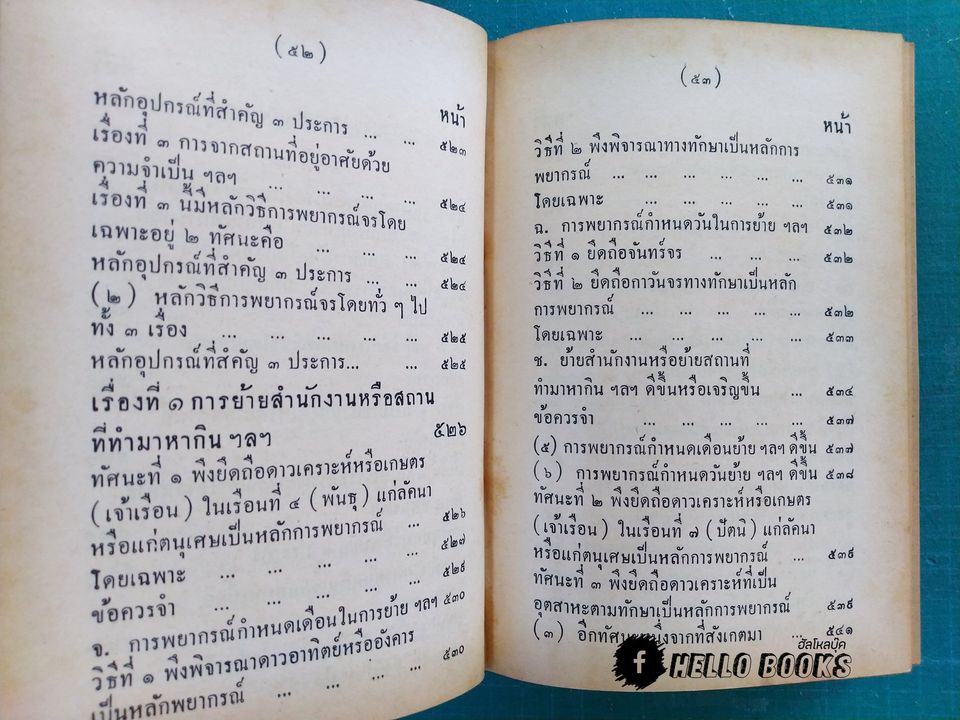 (๕๒)
หน้า
หลักอุปกรณ์ที่สำคัญ ๓ ประการ ... ... ๕๒๓
เรื่องที่ ๓ การจากสถานที่อยู่อาศัยด้วย
ความจำเป็น ฯลฯ ... ... ... ๕๒๔
เรื่องที่ ๓ นี้มีหลักวิธีการพยากรณ์จรโดย
เฉพาะอยู่ ๒ ทัศนะคือ ... ... ... ๕๒๔
หลักอุปกรณ์ที่สำคัญ ๓ ประการ ... ... ๕๒๔
(๒) หลักวิธีการพยากรณ์จรโดยทั่ว ๆ ไป
ทั้ง ๓ เรื่อง ... ... ... ... ... ๕๒๕
หลักอุปกรณ์ที่สำคัญ ๓ ประการ... ... ๕๒๕
เรื่องที่ ๑ การย้ายสำนักงานหรือสถาน
ที่ทำมาหากิน ฯลฯ ๕๒๖
ทัศนะที่ ๑ พึงยึดถือดาวเคราะห์หรือเกษตร
(เจ้าเรือน) ในเรือนที่ ๔ (พันธุ) แก่ลัคนา
หรือแก่ตนุเศษเป็นหลักการพยากรณ์ ... ๕๒๖
โดยเฉพาะ ... ... ... ... ... ๕๒๗
ข้อควรจำ ... ... ... ... ... ๕๒๙
จ. การพยากรณ์กำหนดเดือนในการย้าย ฯลฯ ๕๓๐
วิธีที่ ๑ พึงพิจารณาดาวอาทิตย์หรืออังคาร
เป็นหลักพยากรณ์ ... ... ... ๕๓๐
(๕๓)
หน้า
วิธีที่ ๒ พึงพิจารณาทางทักษาเป็นหลักการ
พยากรณ์ ... ... ... ... ... ... ๕๓๑
โดยเฉพาะ ... ... ... ... ... ๕๓๑
ฉ. การพยากรณ์กำหนดวันในการย้าย ฯลฯ ๕๓๒
วิธีที่ ๑ ยึดถือจันทร์จร ... ... ... ๕๓๒
วิธีที่ ๒ ยึดถือกาวันจรทางทักษาเป็นหลัก
การพยากรณ์ ... ... ... ... ... ๕๓๒
โดยเฉพาะ ... ... ... ... ... ๕๓๓
ช. ย้ายสำนักงานหรือย้ายสถานที่
ทำมาหากิน ฯลฯ ดีขึ้นหรือเจริญขึ้น ... ๕๓๔
ข้อควรจำ ... ... ... ... ... ๕๓๗
(๕) การพยากรณ์กำหนดเดือนย้าย ฯลฯ ดีขึ้น ๕๓๗
(๖) การพยากรณ์กำหนดวันย้าย ฯลฯ ดีขึ้น ๕๓๘
ทัศนะที่ ๒ พึงยึดถือดาวเคราะห์หรือเกษตร
(เจ้าเรือน) ในเรือนที่ ๗ (ปัตนิ) แก่ลัคนา
หรือแก่ตนุเศษเป็นหลักการพยากรณ์ ... ๕๓๙
ทัศนะที่ ๓ พึงยึดถือดาวเคราะห์ที่เป็น
อุตสาหะตามทักษาเป็นหลักการพยากรณ์ ๕๓๙
(๓) อีกทัศนะหนึ่งจากที่สังเกตมา ... ๕๔๑
ฮัลโหลบุ๊ค
HELLO BOOKS